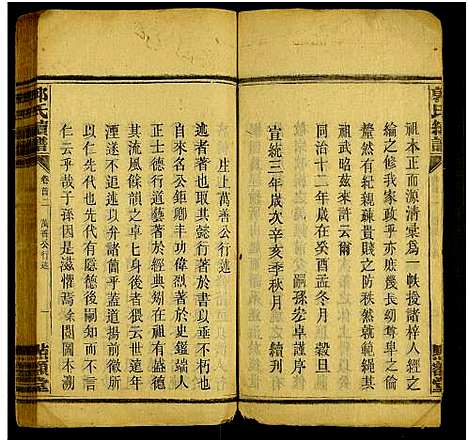 郭氏續譜
祖本正而源清彙爲一帙援諸梓人經之
綸之脩我家政乎亦庶幾長幼尊卑之倫
犛然有紀親疎貴賤之防秩然就範繩其
祖武昭茲來許云爾
同治十二年歲在癸酉孟冬月 穀旦
嗣孫宏卓謹序
宣統三年歲次辛亥季秋月 續刊
點額堂
郭氏續譜
卷首二 萬善公行述
一
點額堂
庠士萬善公行述
述者著也取其懿行著於書以垂不朽也
自來名公鉅卿丰功偉業著於史鑑端人
正士德行道藝著於經典矧在祖有盛德
其流風餘韻之卓卓者猶云世遠年
湮遂不追速以訏諸書可乎蓋道揚前徽所
以仁先代也先代有隱德後嗣知而不傳
仁云乎哉予小子孫因是滋懼焉餘閱圖本溯